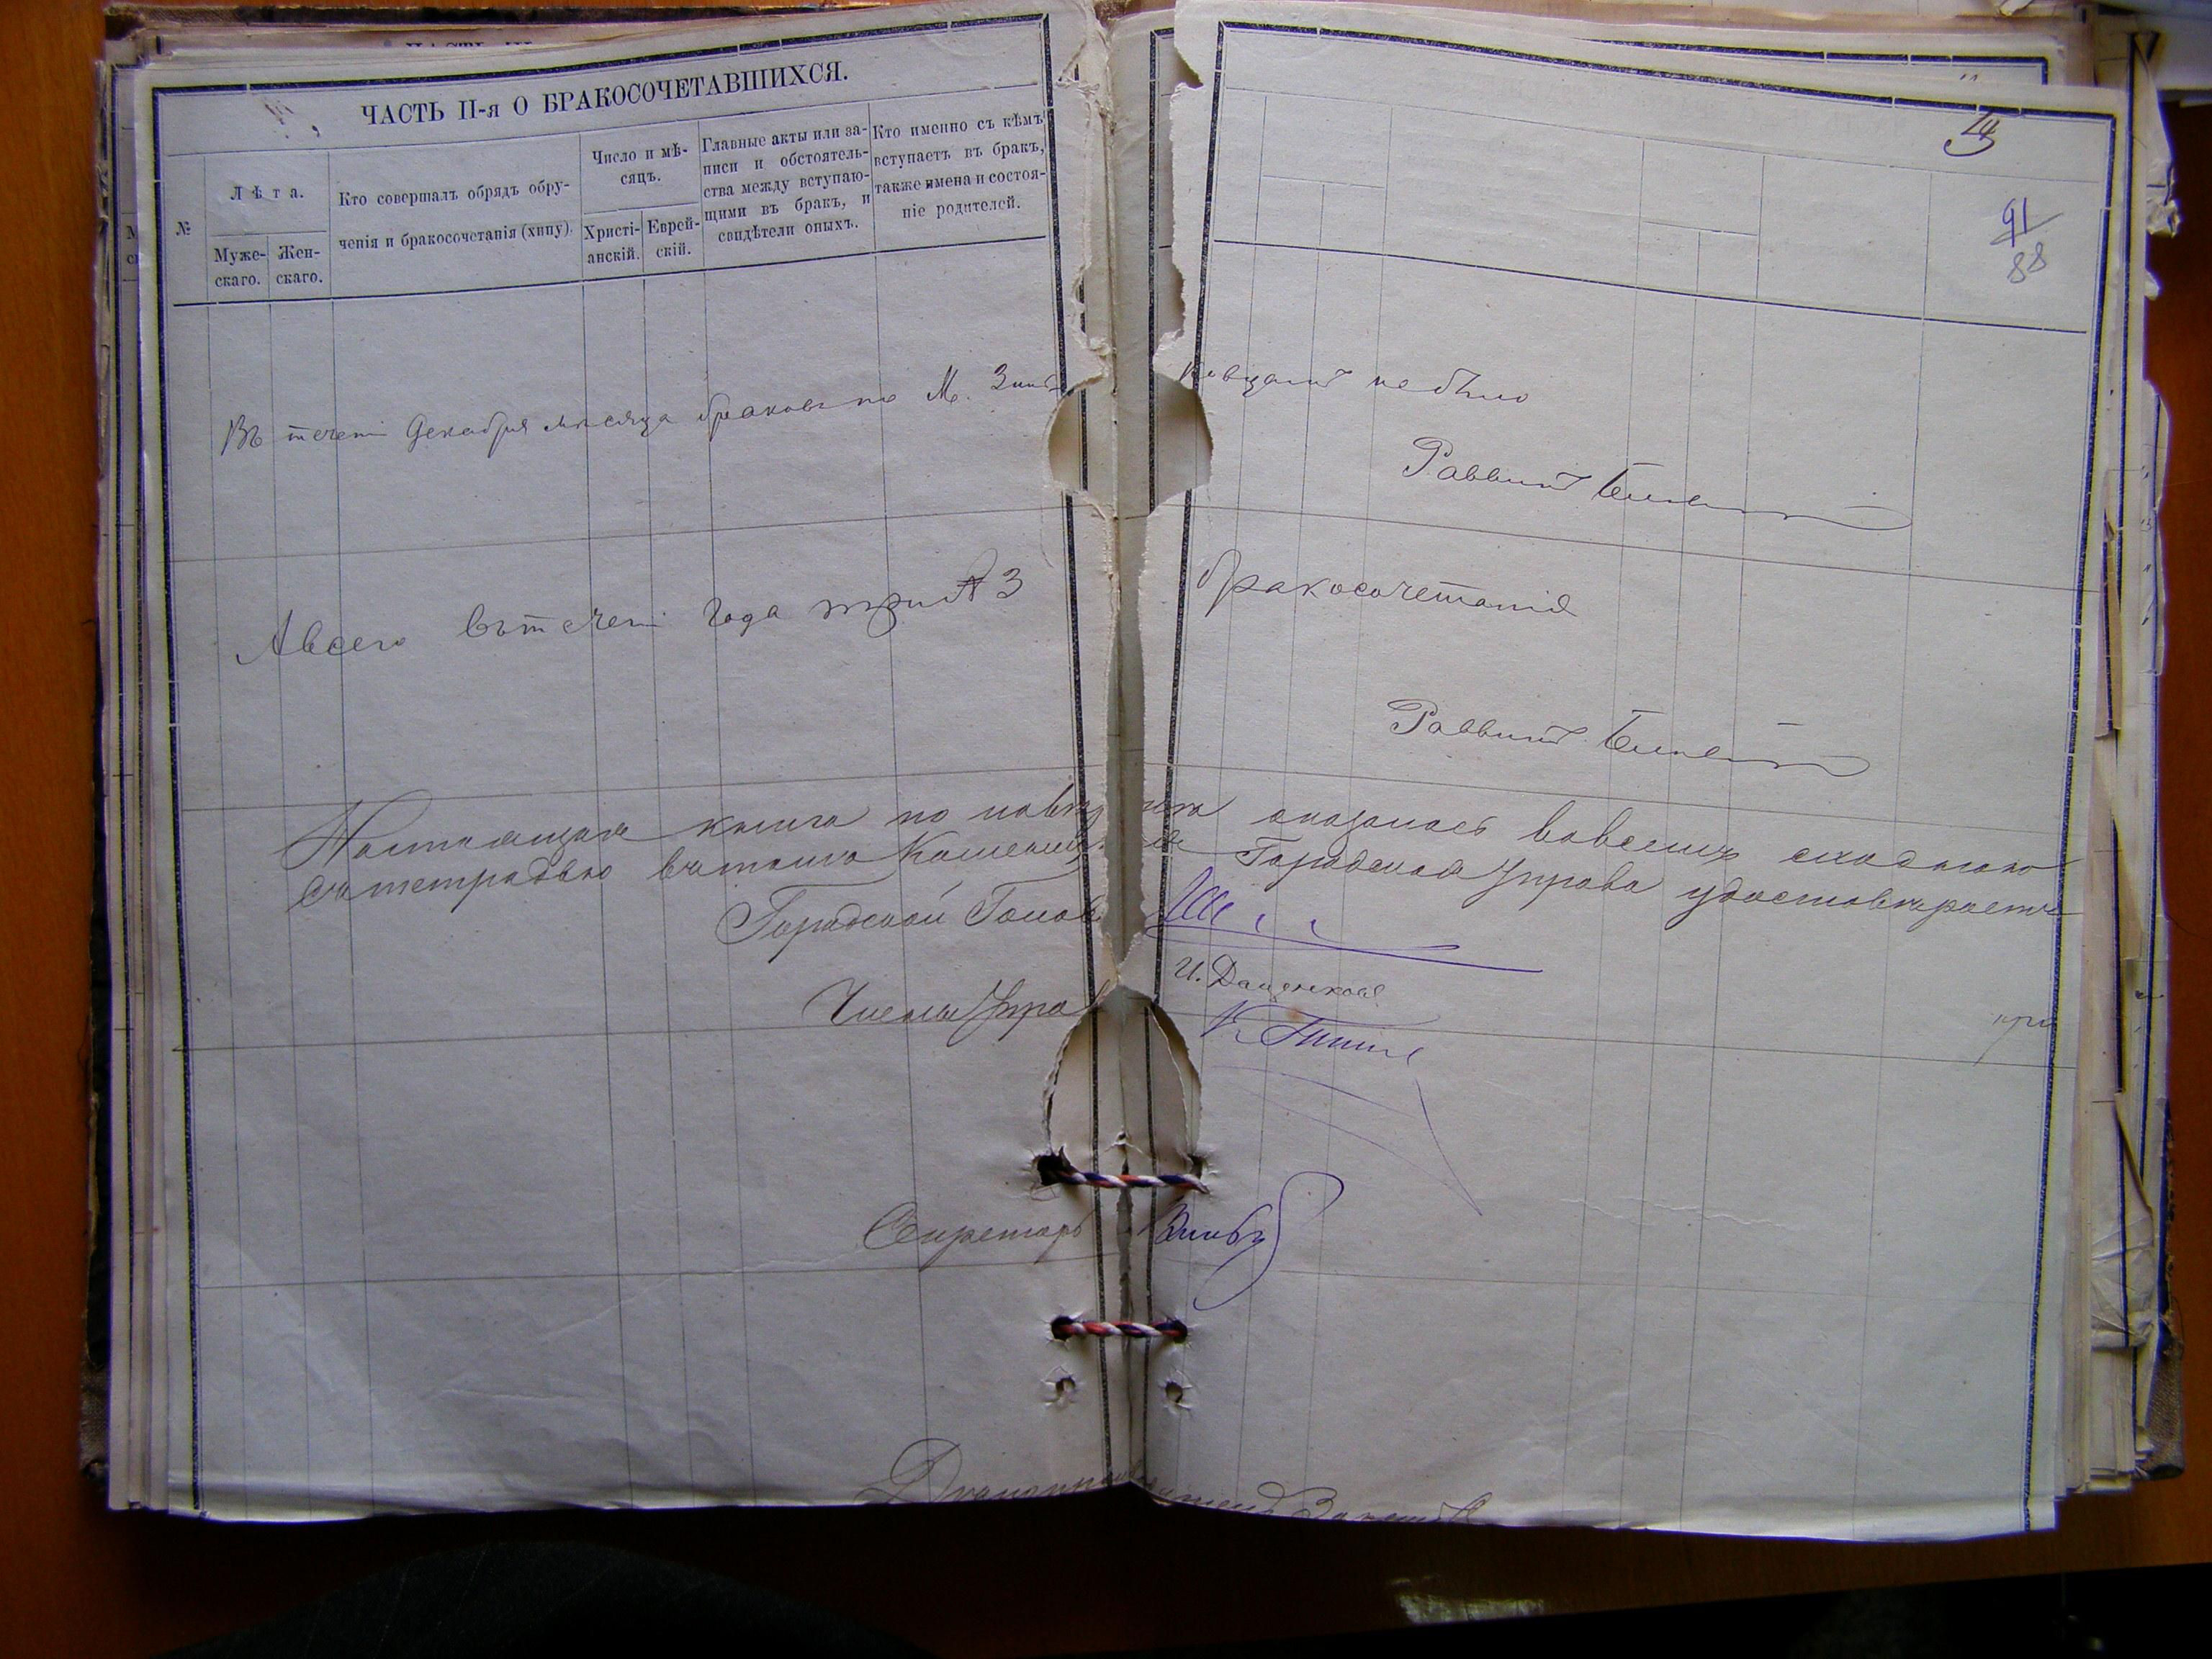 ЧАСТЬ II-я О БРАКОСОЧЕТАВШИХСЯ.
№
Лѣта.
Муже-
скаго.
Жен-
скаго.
Кто совершалъ обрядъ обру-
ченія и бракосочетанія (хипу).
Число и мѣ-
сяцъ.
Христі-
анскій.
Еврей-
скій.
Главные акты или за-
писи и обстоятель-
ства между вступаю-
щими въ бракъ, и
свидѣтели оныхъ.
Кто именно съ кѣмъ
вступаетъ въ бракъ,
также имена и состоя-
ніе родителей.
91
88
Въ течени Декабря мѣсяца браковъ по М. не было
Раввинъ
А всего въ течени года три 3 бракосочетанія
Раввинъ
Настоящая книга по оказалась вовсемъ сходною
съ тетрадью въ томъ Городская Управа удостовѣряетъ
Городской Голов
И. Дащенковъ
Члены Упра
Секретарь